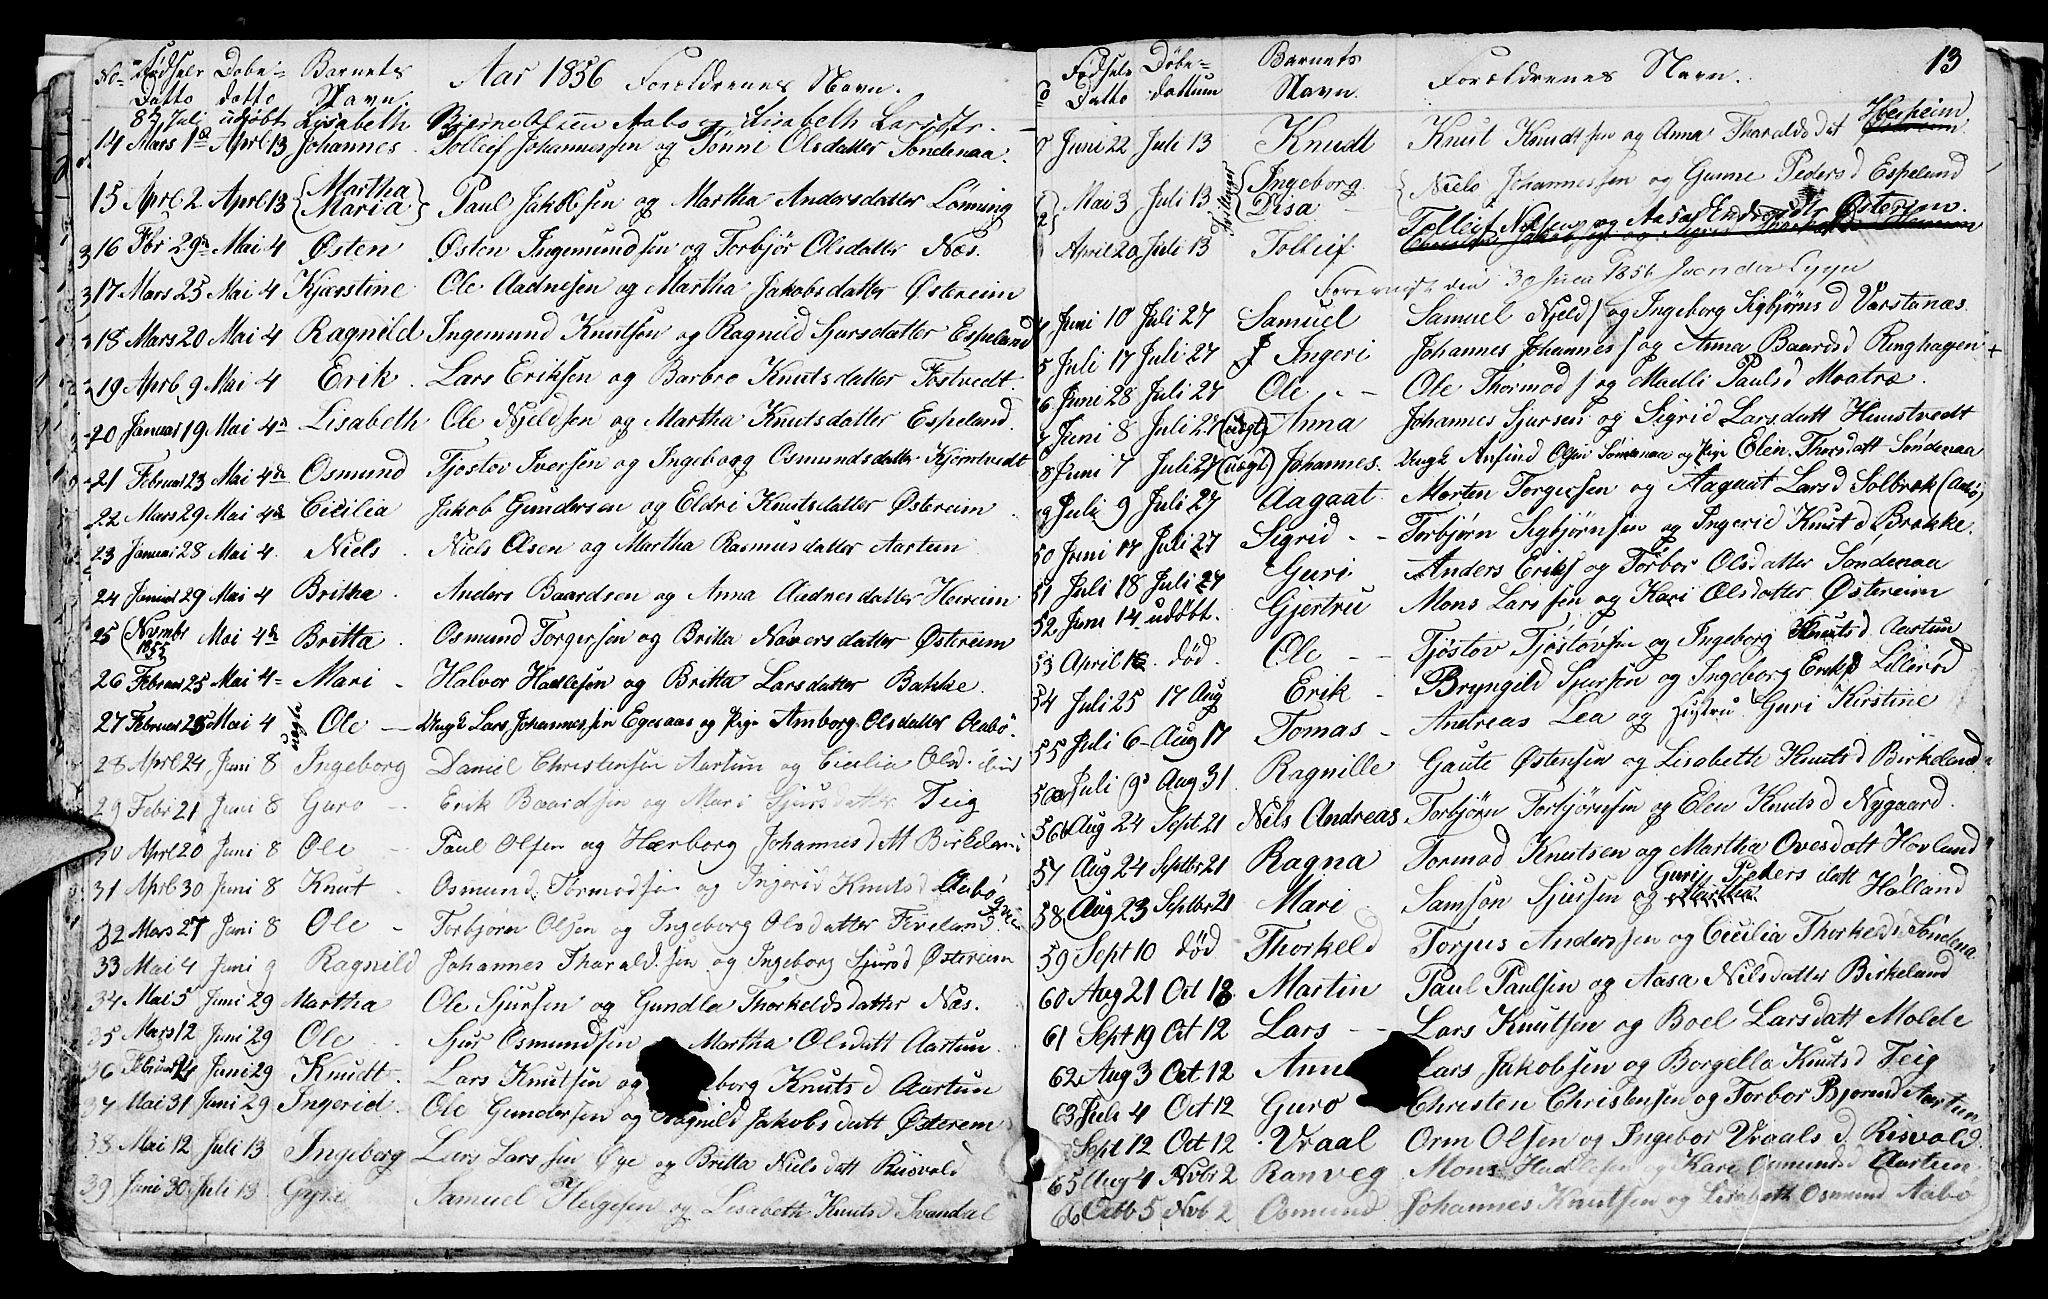 No Fødsels Døbe= Barnets Aar 1856 Forældrenes Navn.
Datto datto Navn.
8 Juli udøbt Lisabeth Bjerne Olsen Aabø og Lisabeth Larsdtr.
14 Mars 1 Aprl 13 Johannes. Tolleif Johannessen og Tønne Olsdatter Søndenaa.
15 Aprl 2 Aprl 13 {Martha Maria} Paul Jakobsen og Martha Andersdatter Lønning
16 Fbr 29 Mai 4 Østen Østen Ingemundsen og Torbjør Olsdatter Næs.
17 Mars 25 Mai 4 Kjerstine Ole Aadnesen og Martha Jakobsdatter Østereim
18 Mars 20 Mai 4 Ragnild Ingemund Knutsøn og Ragnild Sjursdatter Espeland
19 Aprl 9 Mai 4 Erik. Lars Eriksen og Barbro Knutsdatter Tostvedt.
20 Januar 19 Mai 4 Lisabeth Ole Njeldsen og Martha Knutsdatter Espeland.
21 Februar 23 Mai 4de Osmund Tjøstov Iversen og Ingeborg Osmundsdatter Kjørntvedt
22 Mars 29 Mai 4de Cicilia Jakob Gundersen og Eldri Knutsdatter Østereim
23 Januar 28 Mai 4. Niels. Niels Olsen og Martha Rasmusdatter Aartun
24 Januar 29 Mai 4 Britha. Anders Baardsen og Anna Aadnesdatter Hereim.
25 (Novmbr 1855) Mai 4de Britta. Osmund Torgersen og Britta Naversdatter Østereim
26 Februar 25 Mai 4 Mari - Halvor Hadlesen og Britta Larsdatter Bakke.
27 Februar 25 Mai 4 uægte Ole - Ungk Lars Johannessen Egesaas og Pige Amborg Olsdatter Aabø.
28 Aprl 24 Juni 8 Ingeborg Daniel Christensen Aartun og Cicilia Olsd. ibid
29 Febr 21 Juni 8 Guro - Erik Baardsen og Mari Sjursdatter Teig
30 Aprl 20 Juni 8 Ole - Paul Olsen og Hærborg Johannesdtt Birkeland
31 Aprl 30 Juni 8 Knut - Osmund Tormodsen og Ingerid Knutsd Aabø
32 Mars 27 Juni 8 Ole - Torbjørn Olsen og Ingeborg Olsdatter Fiveland
33 Mai 4 Juni 9 Ragnild Johannes Tharaldsen og Ingeborg Sjursd Østereim
34 Mai 5 Juni 29 Martha Ole Sjursen og Gundla Thorkeldsdatter Næs.
35 Mars 12 Juni 29 Ole Sjur Osmundsen Martha Olsdatt Aartun.
36 Februar Juni 29 Knudt. Lars Knutsen og borg Knutsd Aartun
37 Mai 31 Juni 29 Ingerid. Ole Gundersen og Ragnild Jakobsdatt Østerem
38 Mai 12 Juli 13 Ingeborg Lars Larssen Øye og Britta Nielsdatt Riisvold
39 Juni 30 Juli 13 Gyri Samuel Helgesen og Lisabeth Knutsd Svandal
13
No Fødsels Døbe= Barnets Forældrenes Navn.
Datto dattum Navn.
Juni 22 Juli 13 Knudt Knut Knudtsen og Anna Tharaldsdat Hereim
Mai 3 Juli 13 Tvillinger {Ingeborg Disa {Niels Johannessen og Gunne Pedersd Espeland
April 20 Juli 13 Tolleif Tolleif Nilsen og Aasa Endresdtr Østerem.
den 30 Juni 1856
Juni 10 Juli 27 Samuel Samuel Njelds og Ingeborg Sigbjørnsd Varstanæs
5 Juli 17 Juli 27 Ingeri Johannes Johanness og Anna Baardsd Ringhagen +
6 Juni 28 Juli 27 Ole - - Ole Thormods og Madli Paulsd Maatræ.
7 Juni 8 Juli 27 (uægt) Anna Johannes Sjursen og Sigrid Larsdatt Hunstvedt
8 Juni 7 Juli 27 (uægt) Johannes. Ungk Anfind Olsen Søndenaa og Pige Elen Thorsdatt Søndenaa
9 Juli 9 Juli 27 Aagaat. Morten Torgersen og Aagaat Larsd Solbrek (Aabø)
50 Juni 17 Juli 27 Sigrid - - Torbjørn Sigbjørnsen og Ingerid Knutsd Brekke.
51 Juli 18 Juli 27 Guri Anders Eriks og Torbor Olsdatter Søndenaa
52 Juni 14 udøbt. Gjertru Mons Larssen og Kari Olsdatter Østereim
53 April 12. død. Ole - - Tjøstov Tjøstovsen og Ingeborg Knutsd. Aartun
54 Juli 25 17 Aug Erik - Bryngild Sjursen og Ingeborg Eriksd Lillerød
55 Juli 6 - Aug 17 Tomas - Andreas Lea og Hustru Guri Kirstine
56a Juli 9 Aug 31 Ragnille Gaute Østensen og Lisabeth Knutsd Birkeland
56b Aug 24 Sept. 21 Nils Andreas Torbjørn Torbjørnsen og Elen Knutsd Nygaard.
57 Aug 24 Septbr 21 Ragna Tormod Knutsen og Martha Ovesdatt Hovland
58 Aug 23 Septbr 21 Mari Samson Sjursen og Martha Guri Peders datt Hølland
59 Sept 10 død Thorkeld Torjus Anderssen og Cicilia Thorkelds Søndena
60 Aug 21 Oct 12 Martin Paul Paulsen og Aasa Nilsdatter Birkeland
61 Sept 19 Oct 12 Lars - - Lars Knutsen og Boel Larsdatt Molde
62 Aug 3 Oct 12 Ann Lars Jakobsen og Borgella Knutsd Teig
63 Juli 4 Oct 12 Guro Christen Christensen og Torbor Bjørnsd Aartun
Sept 12 Oct 12 Vraal Orm Olsen og Ingebor Vraalsd Risvold
65 Aug 4 Novbr 2 Ranveg Mons Hadlesen og Kari Osmundsd Aartun
66 Octb 5 Novb 2 Osmund Johannes Knutsen og Lisabeth Osmunsd Aabø